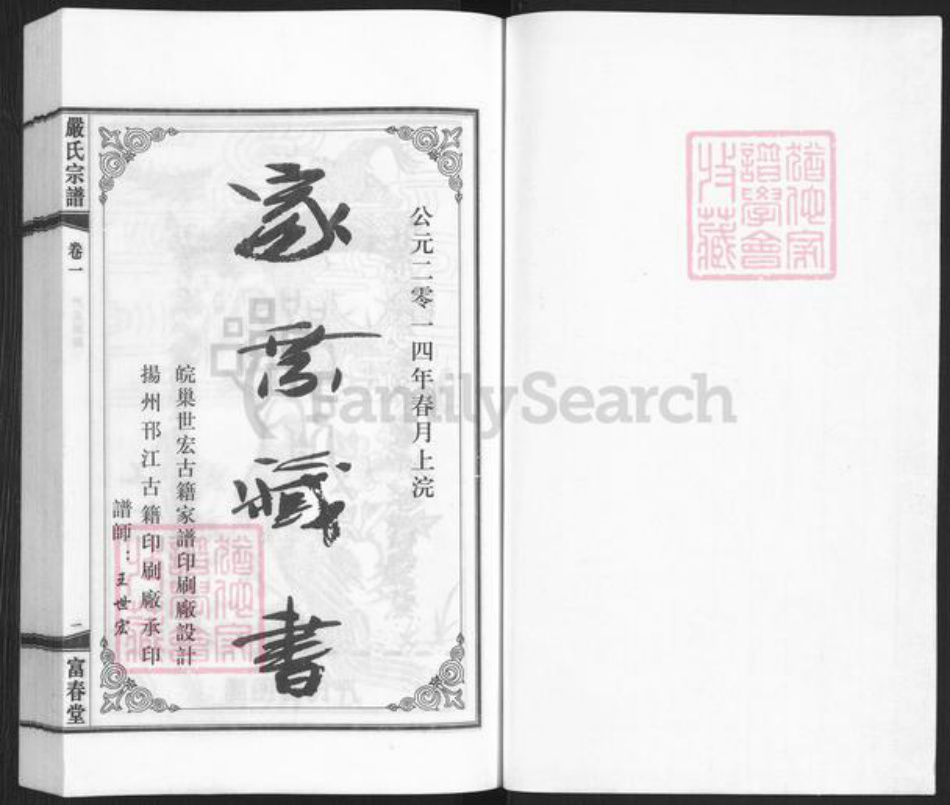 猶他家
譜學會
收藏
公元二零一四年春月上浣
家藏書
皖巢世宏古籍家譜印刷廠設計
揚州邗江古籍印刷廠承印
譜師：王世宏
嚴氏宗譜
卷一
二
富春堂
猶他家
譜學會
收藏
FamilySearch